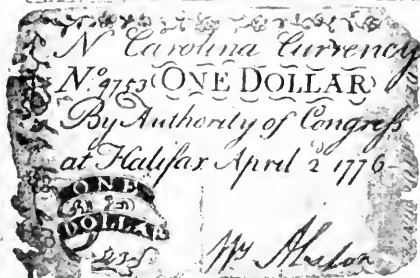 N Carolina Currency
No. 9753 (ONE DOLLAR)
By Authority of Congress
at Halifax April 2 1776
ONE
DOLLAR
Wm